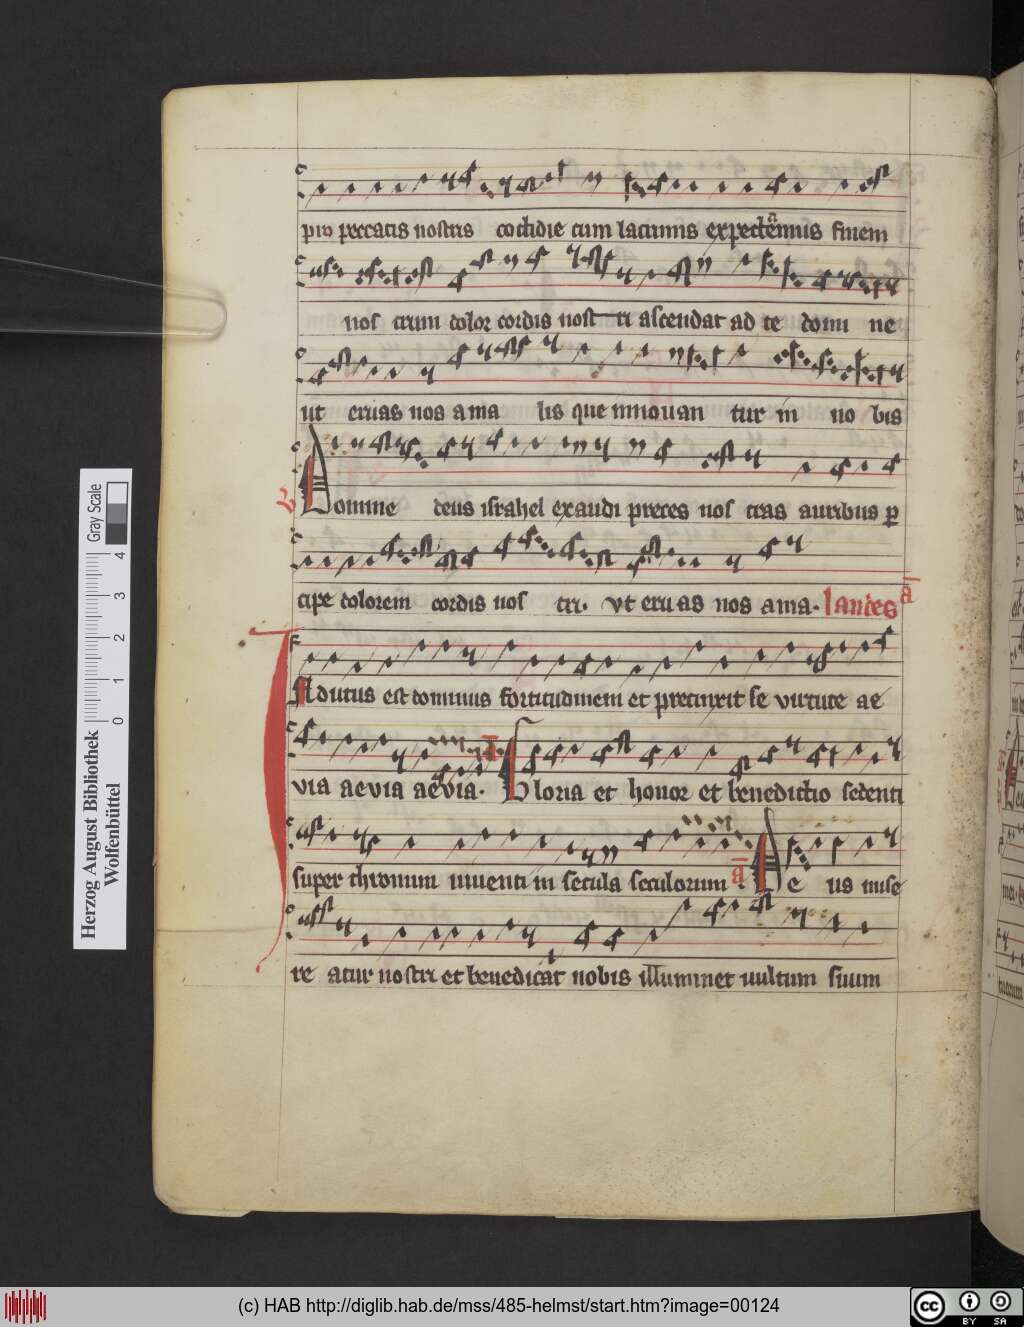 pro peccatis nostris cotidie cum lacrimis expectemus finem
nostrum dolor cordis nostri ascendat ad te domine
ut eruas nos a malis que innouantur in nobis
Domine deus israhel exaudi preces nostras auribus p
cipe dolorem cordis nostri. vt eruas nos a ma. laudes a
Indutus est dominus fortitudinem et precinxit se virtute ae
via aevia aevia. Gloria et honor et benedictio sedenti
super thronum uiuenti in secula seculorum. a Deus mise
reatur nostri et benedicat nobis illuminet uultum suum
Herzog August Bibliothek
Wolfenbüttel
Gray Scale
0 1 2 3 4
(c) HAB http://diglib.hab.de/mss/485-helmst/start.htm?image=00124
cc BY SA